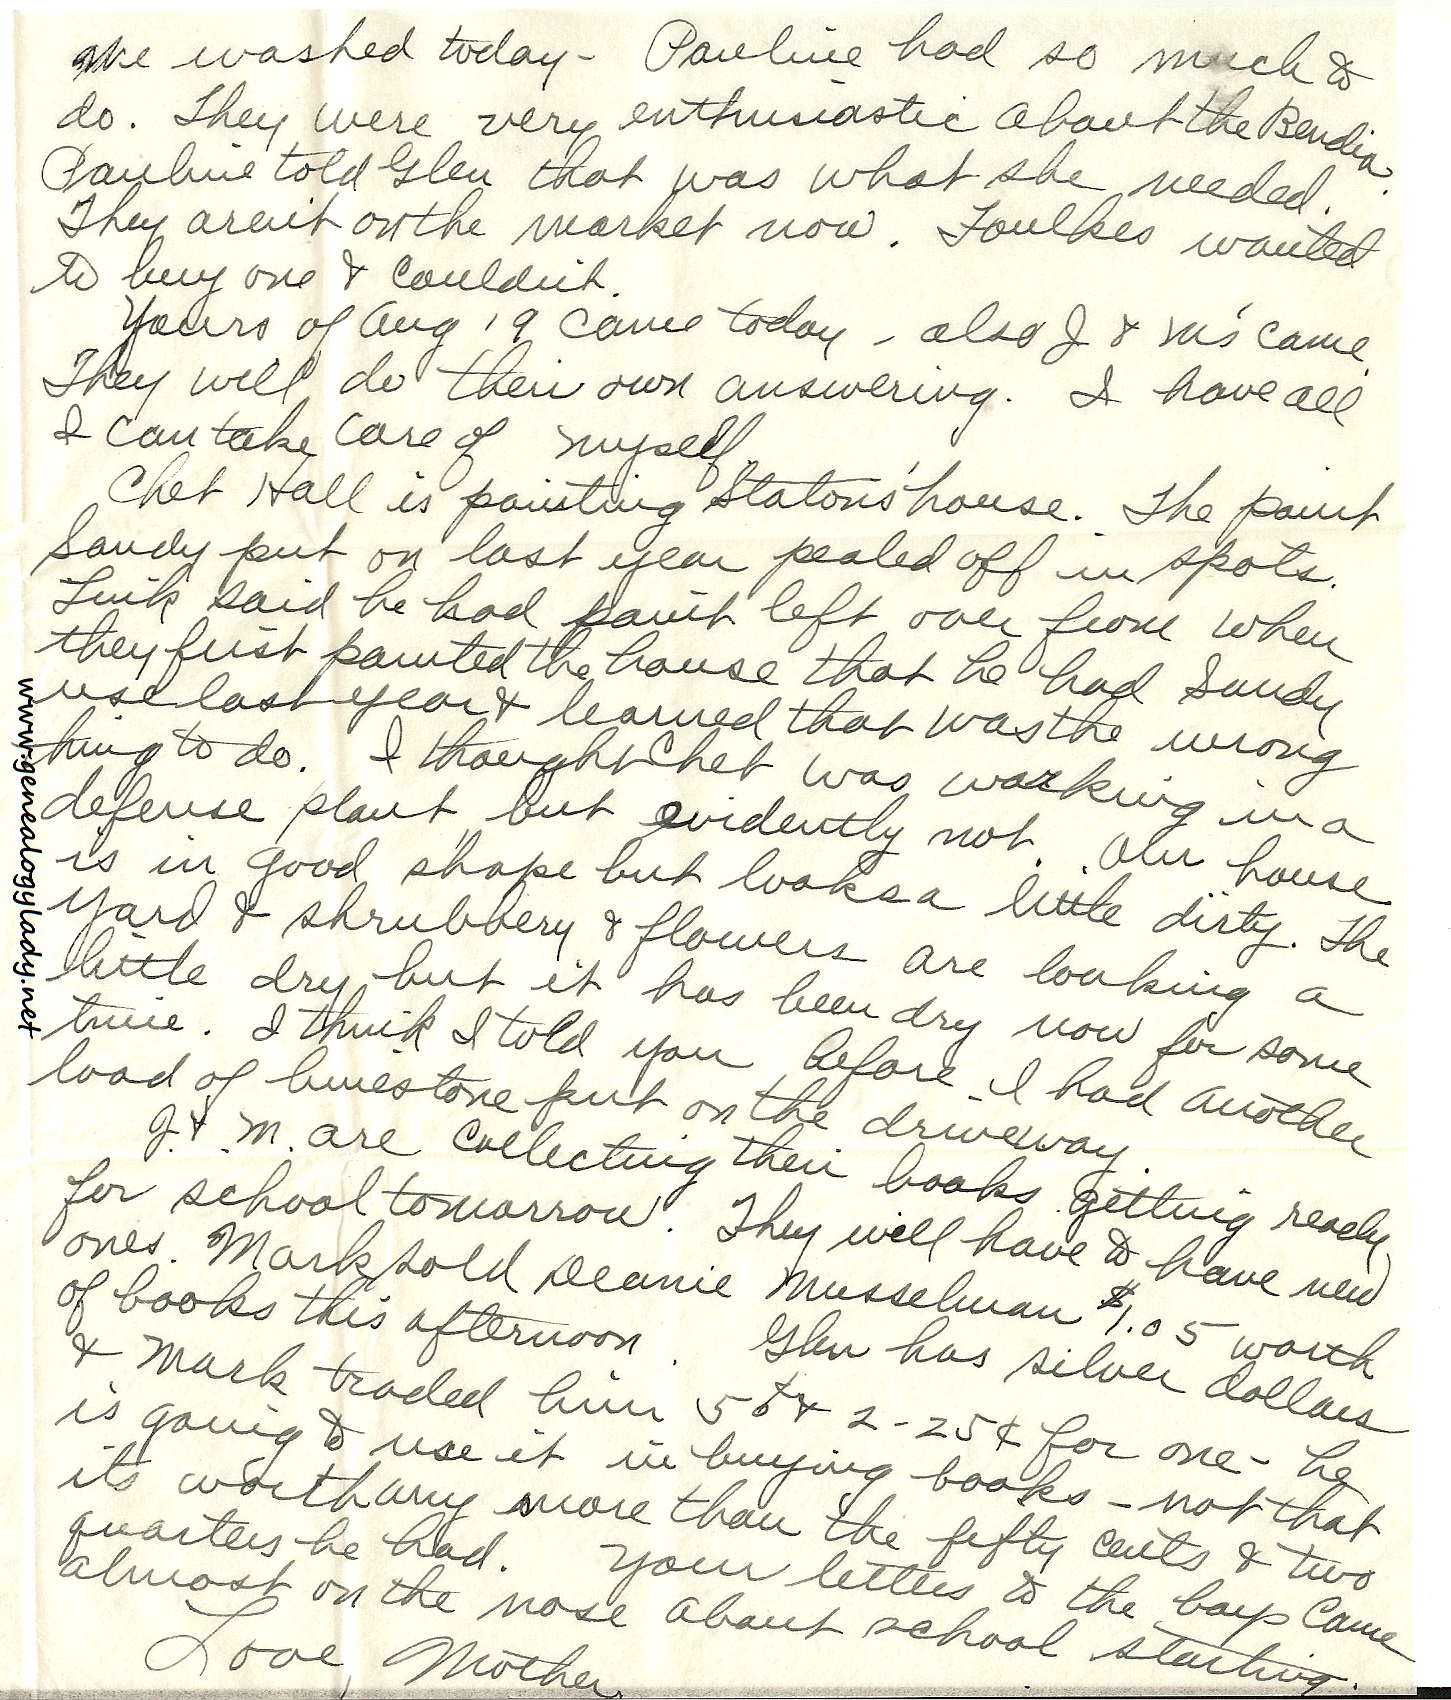 We washed today - Pauline had so much to
do. They were very enthusiastic about the Bendix.
Pauline told Glen that was what she needed.
They aren't on the market now. Foulkes wanted
to buy one & couldn't.
Yours of Aug 19 came today - also J & M's came.
They will do their own answering. I have all
I can take care of myself.
Chet Hall is painting Statons' house. The paint
Sandy put on last year pealed off in spots.
Link said he had paint left over from when
they first painted the house that he had Sandy
use last year & learned that was the wrong
thing to do. I thought Chet was working in a
defense plant, but evidently not. Our house
is in good shape but looks a little dirty. The
yard & shrubbery & flowers are looking a
little dry but it has been dry now for some
time. I think I told you before I had another
load of limestone put on the driveway.
J. & M. are collecting their books getting ready
for school tomorrow. They will have to have new
ones. Mark sold Deanie Musselman $1.05 worth
of books this afternoon. Glen has silver dollars
& Mark traded him 50¢ & 2-25¢ for one - he
is going to use it in buying books - not that
its worth any more than the fifty cents & two
quarters he had. Your letters to the boys came
almost on the nose about school starting.
Love, Mother.
www.genealogylady.net